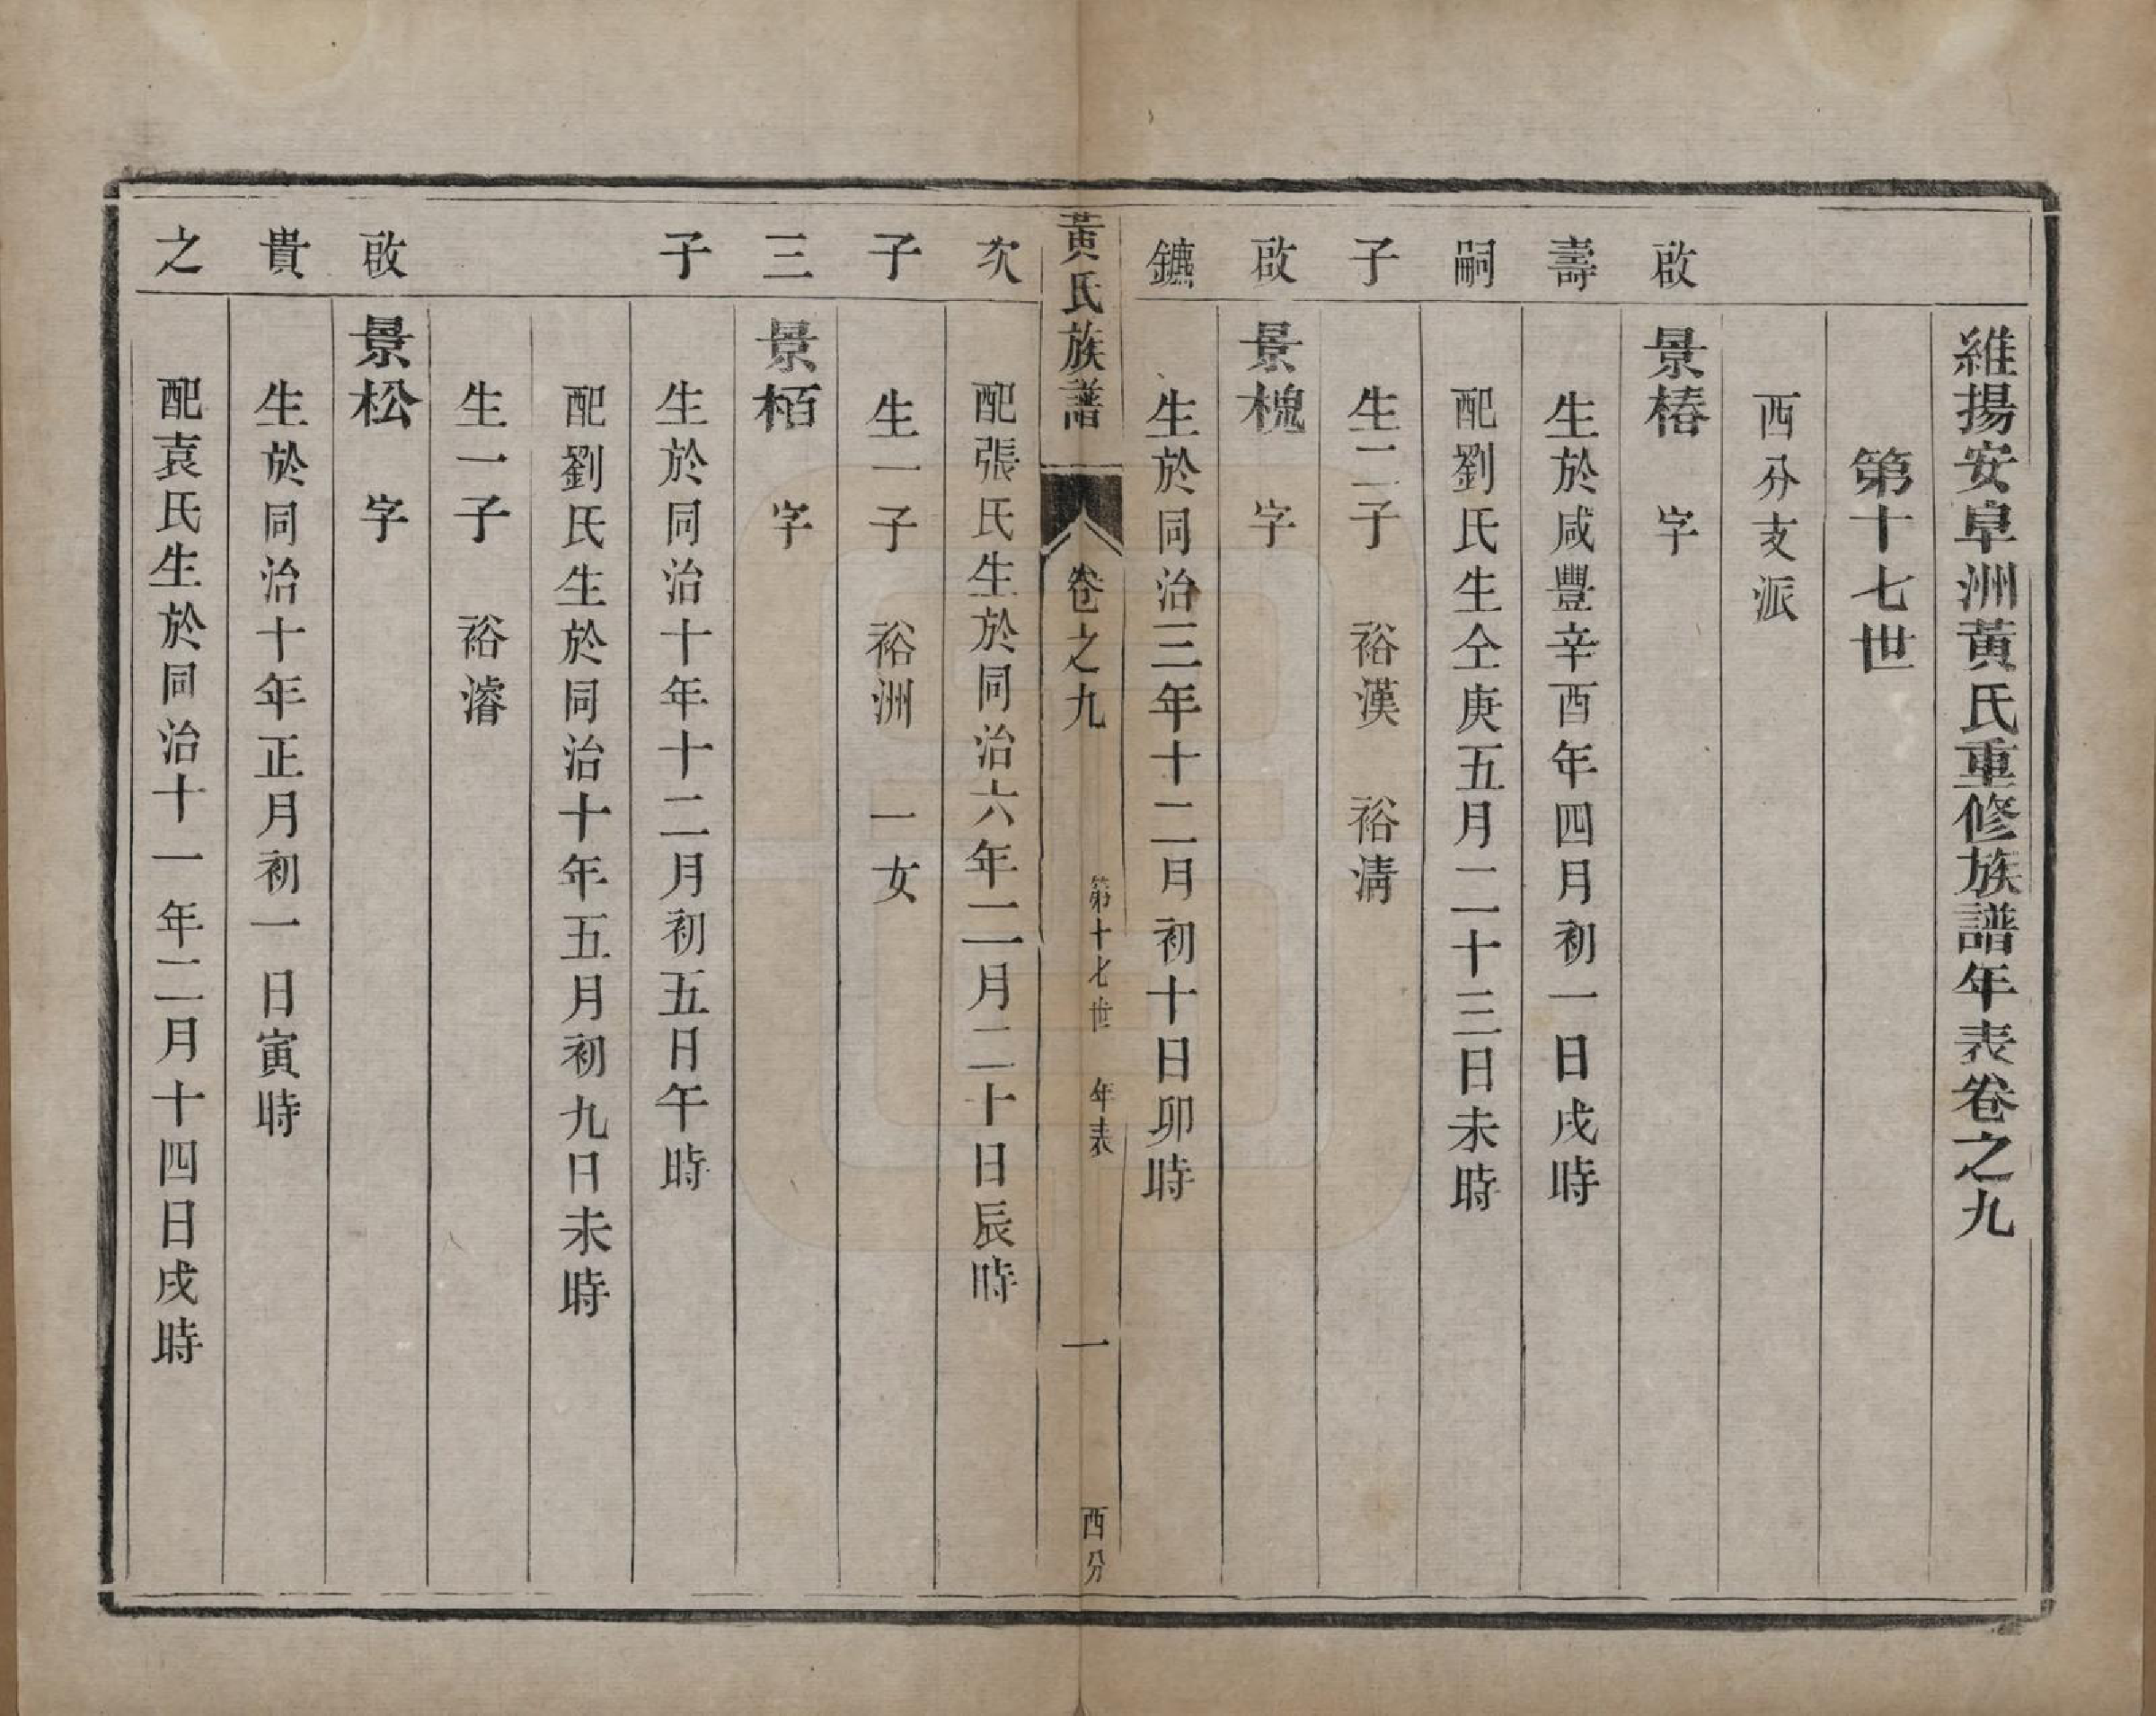 維揚安阜洲黃氏重修族譜年表卷之九
第十七世
西分支派
啟
景椿　字
壽
生於咸豐辛酉年四月初一日戌時
嗣
配劉氏生仝庚五月二十三日未時
子
生二子　裕漢　裕清
啟
景槐　字
鑣
生於同治三年十二月初十日卯時
黃氏族譜
卷之九
第十七世　年表
一
西分
次
配張氏生於同治六年二月二十日辰時
子
生一子　裕洲　一女
三
景栢　字
子
生於同治十年十二月初五日午時
配劉氏生於同治十年五月初九日未時
生一子　裕濬
啟
景松　字
貴
生於同治十年正月初一日寅時
之
配袁氏生於同治十一年二月十四日戌時